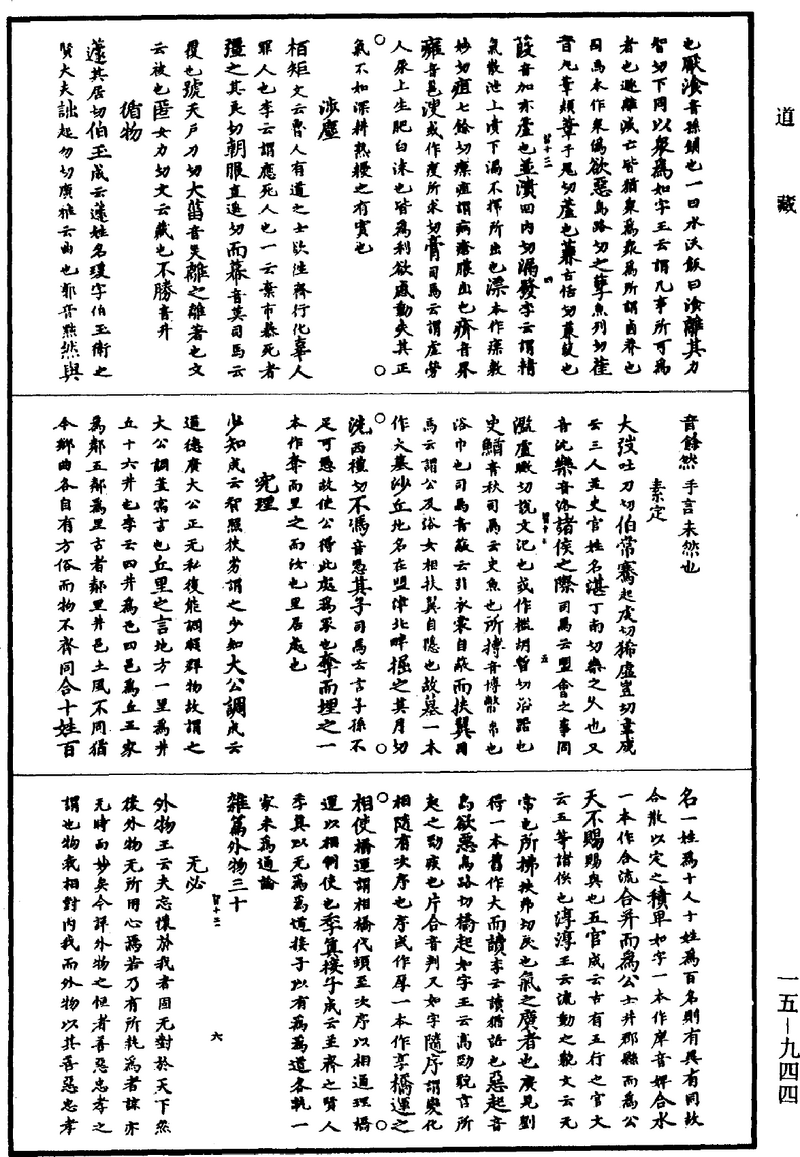 道藏
也厭滄音孫鎖也一曰水沃飯曰滄離其力
智切下同以衆爲如字王云謂凡事所可爲
者也遯離滅亡皆猶衆爲衆爲所謂鹵莽也
司馬本作衆僞欲惡烏路切之孽魚列切萑
音丸葦類葦于鬼切蘆也蒹古恬切蒹葭也
葭音加亦蘆也並潰回內切漏發字云謂精
氣散泄上潰下漏不擇所出也漂本作瘭敷
妙切疽七餘切瘭疽謂病瘡膿出也疥音界
雍音邕溲或作瘦所求切膏司馬云謂虛勞
人尿上生肥白沫也皆爲利欲感動失其正
氣不如深耕熟耰之有實也
涉塵
栢矩文云魯人有道之士欲往齊行化辜人
罪人也李云謂應死人也一云棄市暴死者
彊之其良切朝服直遥切而幕音莫司馬云
覆也號天戶刀切大菑音災離之離著也文
云被也匿女力切文云藏也不勝音升
循物
蘧其居切伯玉成云蘧姓名瑗字伯玉衛之
賢大夫詘起勿切廣雅云曲也郭音黜然與
音餘然乎言未然也
素定
大弢吐刀切伯常騫起虔切狶虛豈切韋成
云三人並史官姓名湛丁南切樂之久也又
音沈樂音洛諸侯之際司馬云盟會之事同
濫盧瞰切說文氾也或作檻胡暫切浴器也
史鰌音秋司馬云史魚也所搏音博幣帛也
浴巾也司馬音蔽云引衣裳自蔽而扶翼司
馬云謂公及浴女相扶翼自隱也故墓一本
作大墓沙丘地名在盟津北畔掘之其月切
洗西禮切不馮音憑其子司馬云言子孫不
足可憑故使公得此處爲冢也奪而埋之一
本作奪而里之而汝也里居處也
究理
少知成云智照狹劣謂之少知大公調成云
道德廣大公正无私復能調順群物故謂之
大公調並寓言也丘里之言地方一里爲井
五十六井也李云四井爲邑四邑爲丘五家
爲鄰五鄰爲里古者鄰里井邑土風不同猶
今鄉曲各自有方俗而物不齊同合十姓百
名一姓爲十人十姓爲百名則有異有同故
合散以定之積卑如字一本作庳音婢合水
一本作合流合并而爲公士井郡縣而爲公
天不賜賜與也五官成云古有五行之官文
云五等諸侯也淳淳王云流動之貌文云无
常也所拂扶弗切戾也氣之廣者也度見劉
得一本舊作大而讀李云讀猶語也惡起音
烏欲惡烏路切橋起如字王云高勁貌言所
起之勁疾也片合音判又如字隨序謂變化
相隨有次序也序或作原一本作享橋運之
相使橋運謂相橋代頓至次序以相通理橋
運以相制使也季真接子成云並齊之賢人
季真以无爲爲道接子以有爲爲道各執一
家未爲通論
雜篇外物三十
无必
外物王云夫忘懷於我者固无對於天下然
後外物无所用心焉若乃有所執爲者諒亦
无時而妙矣今評外物之恒者善惡忠孝之
謂也物我相對內我而外物以其善惡忠孝
一五-九四四